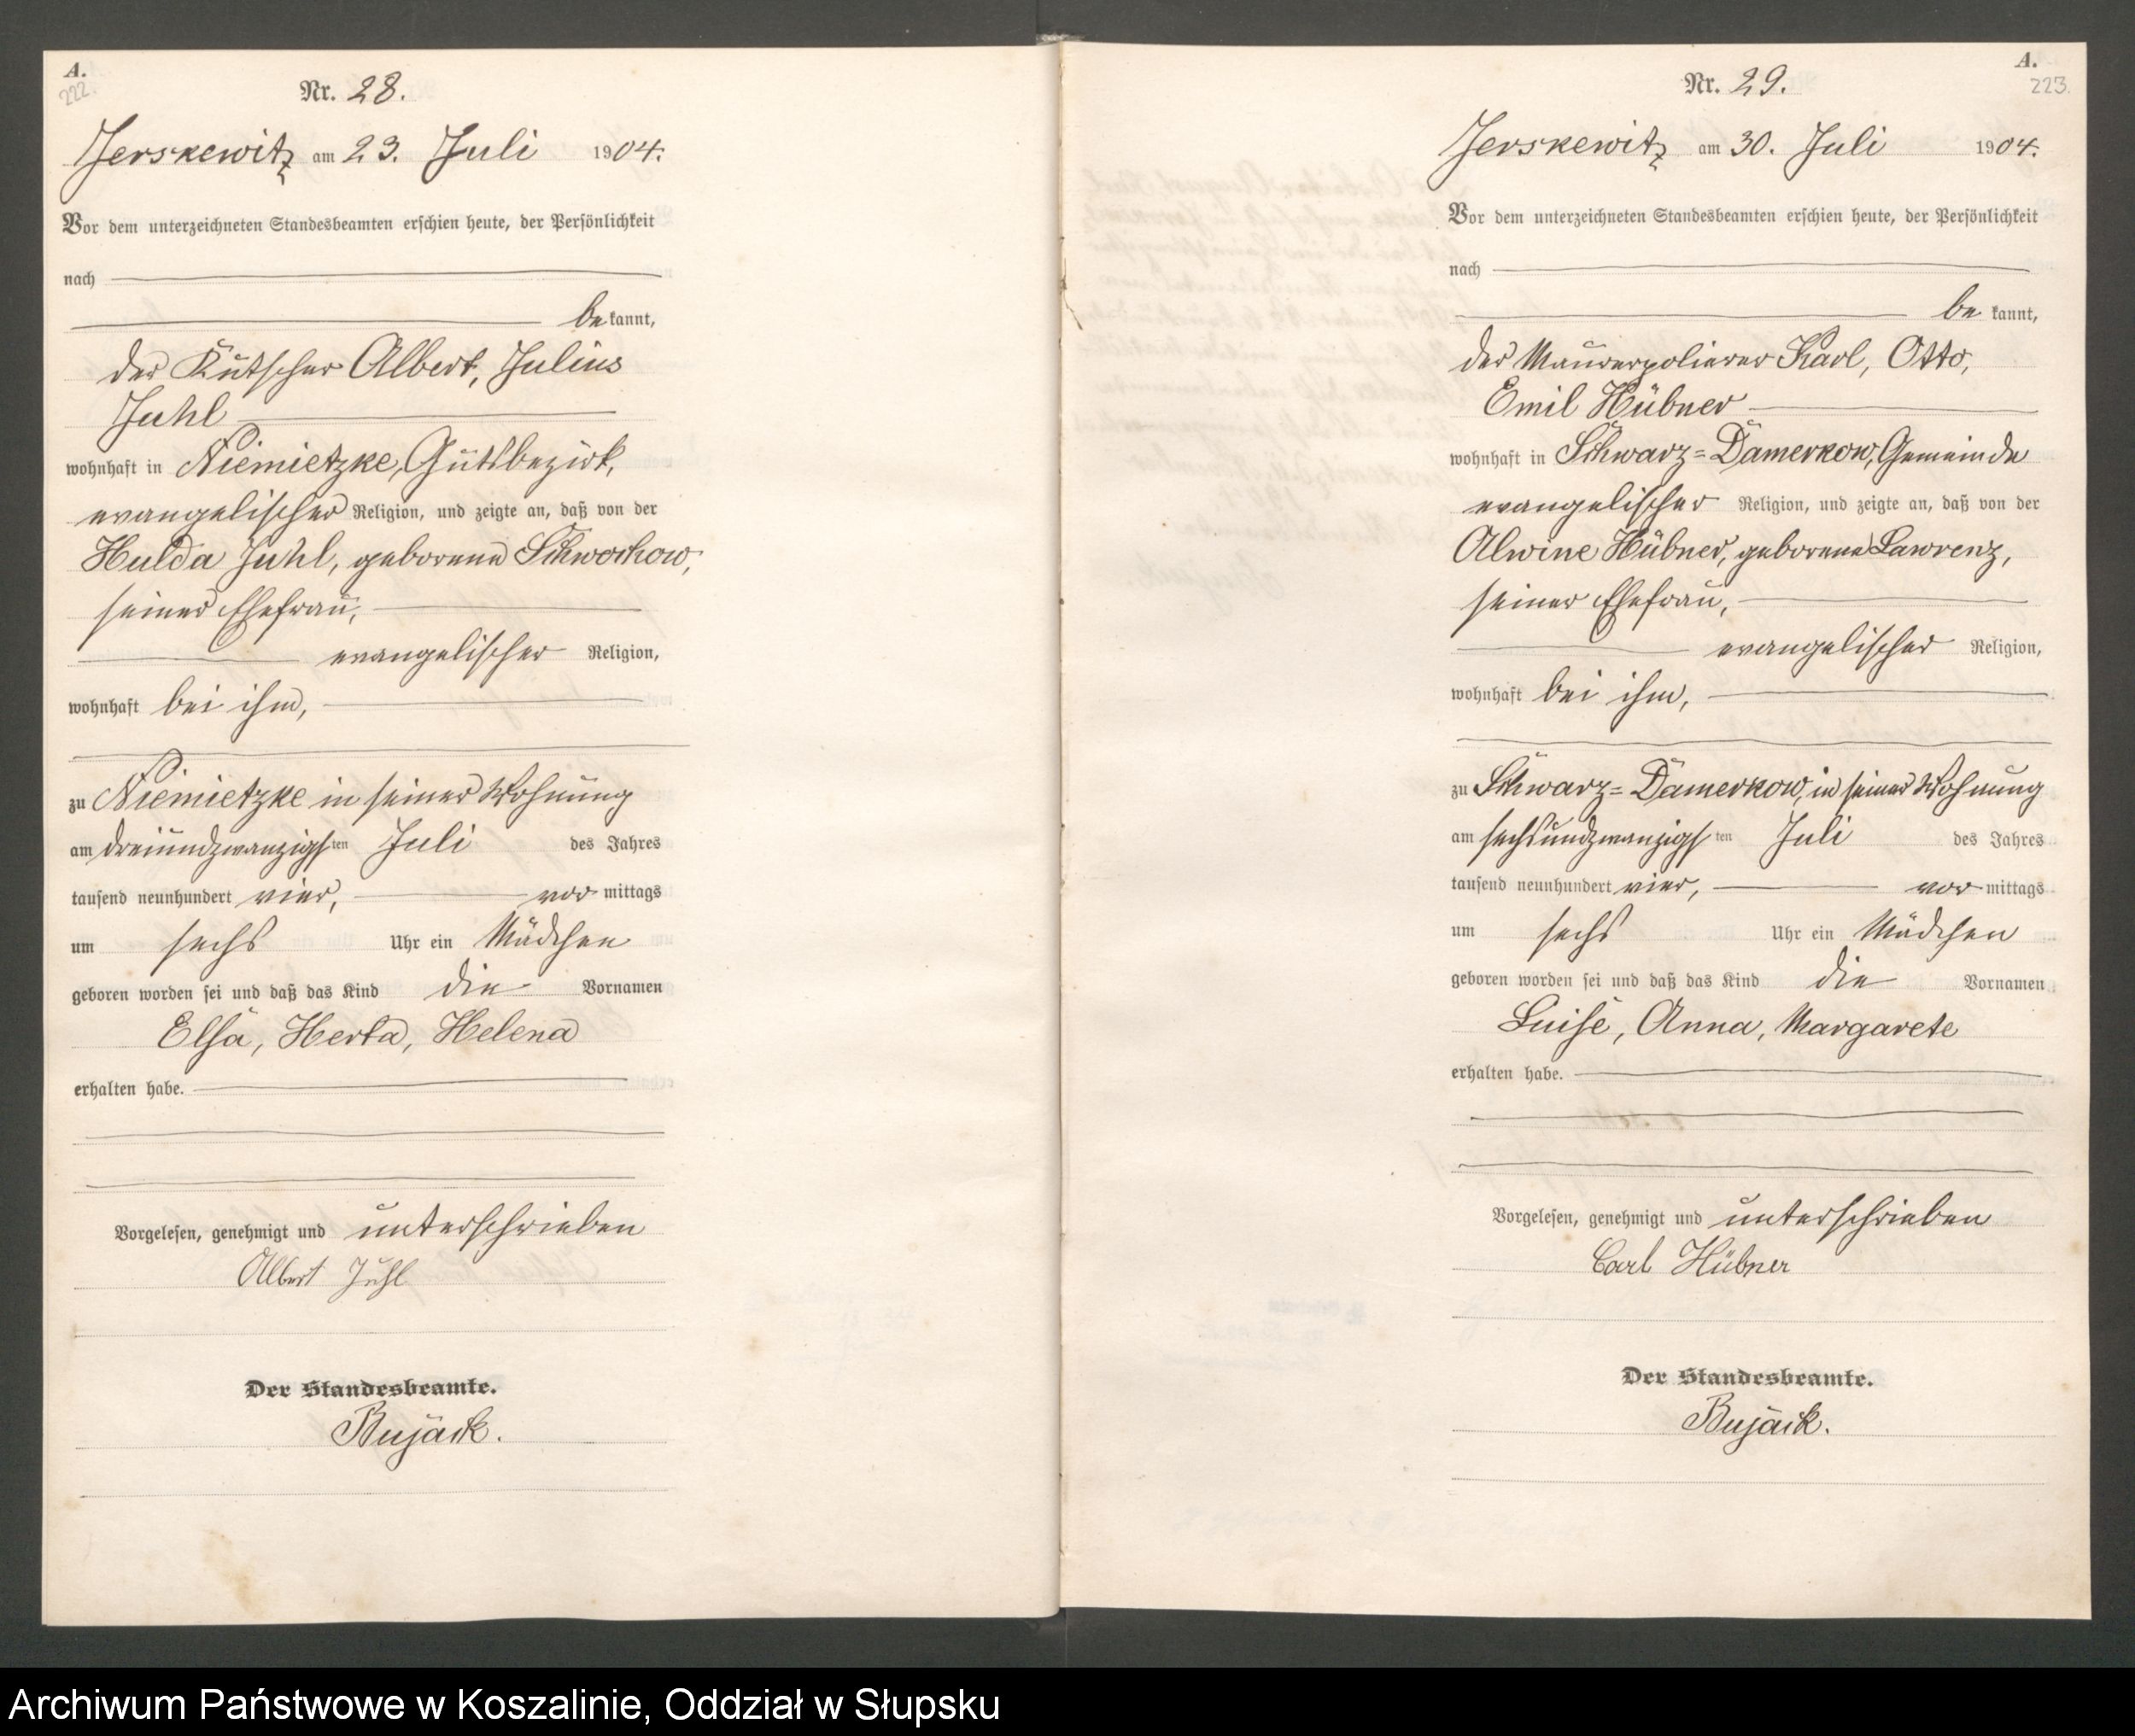 A.
222.
Nr. 28.
Jerskewitz am 23. Juli 1904.
Vor dem unterzeichneten Standesbeamten erschien heute, der Persönlichkeit
nach
bekannt,
der Kutscher Albert, Julius
Juhl
wohnhaft in Niemietzke, Gutsbezirk,
evangelischer Religion, und zeigte an, daß von der
Hulda Juhl, geborene Schwochow,
seiner Ehefrau,
evangelischer Religion,
wohnhaft bei ihm,
zu Niemietzke in seiner Wohnung
am dreiundzwanzigsten Juli des Jahres
tausend neunhundert vier, vormittags
um sechs Uhr ein Mädchen
geboren worden sei und daß das Kind die Vornamen
Elsa, Herta, Helena
erhalten habe.
Vorgelesen, genehmigt und unterschrieben
Albert Juhl
Der Standesbeamte.
Bujack.
A.
223.
Nr. 29.
Jerskewitz am 30. Juli 1904.
Vor dem unterzeichneten Standesbeamten erschien heute, der Persönlichkeit
nach
bekannt,
der Maurerpolierer Karl, Otto,
Emil Hübner
wohnhaft in Schwarz=Damerkow, Gemeinde
evangelischer Religion, und zeigte an, daß von der
Alwine Hübner, geborene Lawrenz,
seiner Ehefrau,
evangelischer Religion,
wohnhaft bei ihm,
zu Schwarz=Damerkow, in seiner Wohnung
am sechsundzwanzigsten Juli des Jahres
tausend neunhundert vier, vormittags
um sechs Uhr ein Mädchen
geboren worden sei und daß das Kind die Vornamen
Luise, Anna, Margarete
erhalten habe.
Vorgelesen, genehmigt und unterschrieben
Carl Hübner
Der Standesbeamte.
Bujack.
Archiwum Państwowe w Koszalinie, Oddział w Słupsku